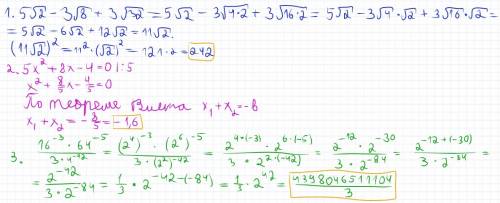 1. 5√2 - 3√8 + 3√32 = 5√2 - 3√4·2 + 3√16·2 = 5√2 - 3√4·√2 + 3√16·√2 =
= 5√2 - 6√2 + 12√2 = 11√2.
(11√2)² = 11²·(√2)² = 121·2 = 242
2. 5x² + 8x - 4 = 0 | :5
x² + 8/5x - 4/5 = 0
По теореме Виета x₁ + x₂ = -b
x₁ + x₂ = -8/5 = -1,6
3. 16⁻³ · 64⁻⁵ / 3·4⁻⁴² = (2⁴)⁻³ · (2⁶)⁻⁵ / 3·(2²)⁻⁴² = 2^(4·(-3)) · 2^(6·(-5)) / 3·2^(2·(-42)) = 2⁻¹² · 2⁻³⁰ / 3·2⁻⁸⁴ = 2^(-12+(-30)) / 3·2⁻⁸⁴ =
= 2⁻⁴² / 3·2⁻⁸⁴ = 1/3 · 2^(-42-(-84)) = 1/3 · 2⁴² = 4398046511104 / 3